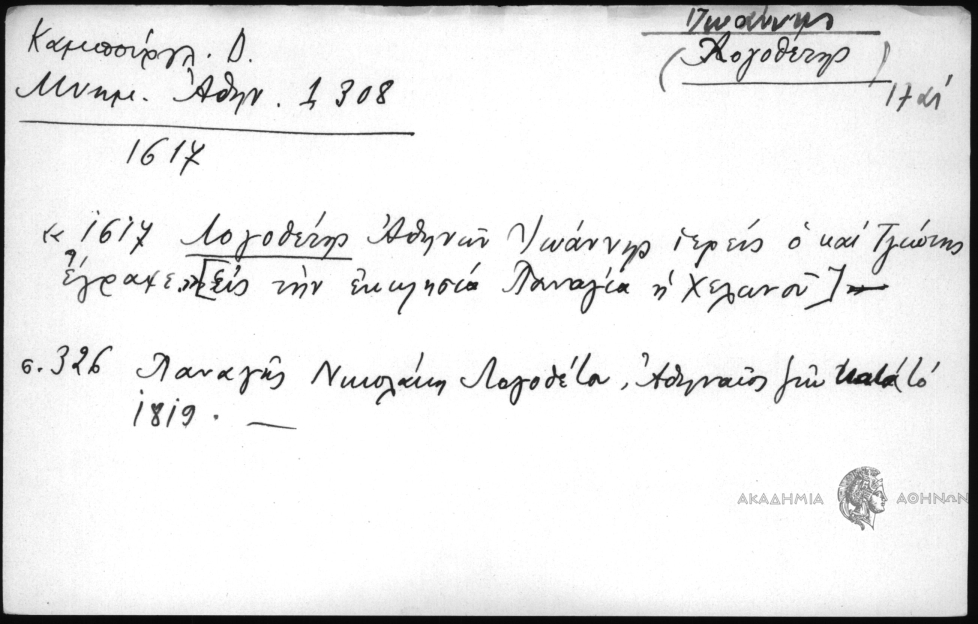 Καμπούργλ. Δ.
Μνημ. Ἀθην. 1 308
1617
Ἰωάννης
(Λογοθέτης)
17 αἰ
« 1617 Λογοθέτης Ἀθηνῶν Ἰωάννης ἱερεὺς ὁ καὶ
ἔγραψε.» [εἰς τὴν ἐκκλησία Παναγία ἡ Χελανοῦ]
σ. 326 Παναγῆς Νικολάκη Λογοθέτη, Ἀθηναῖος ζῶν κατὰ τὸ
1819. —
ΑΚΑΔΗΜΙΑ ΑΘΗΝΩΝ